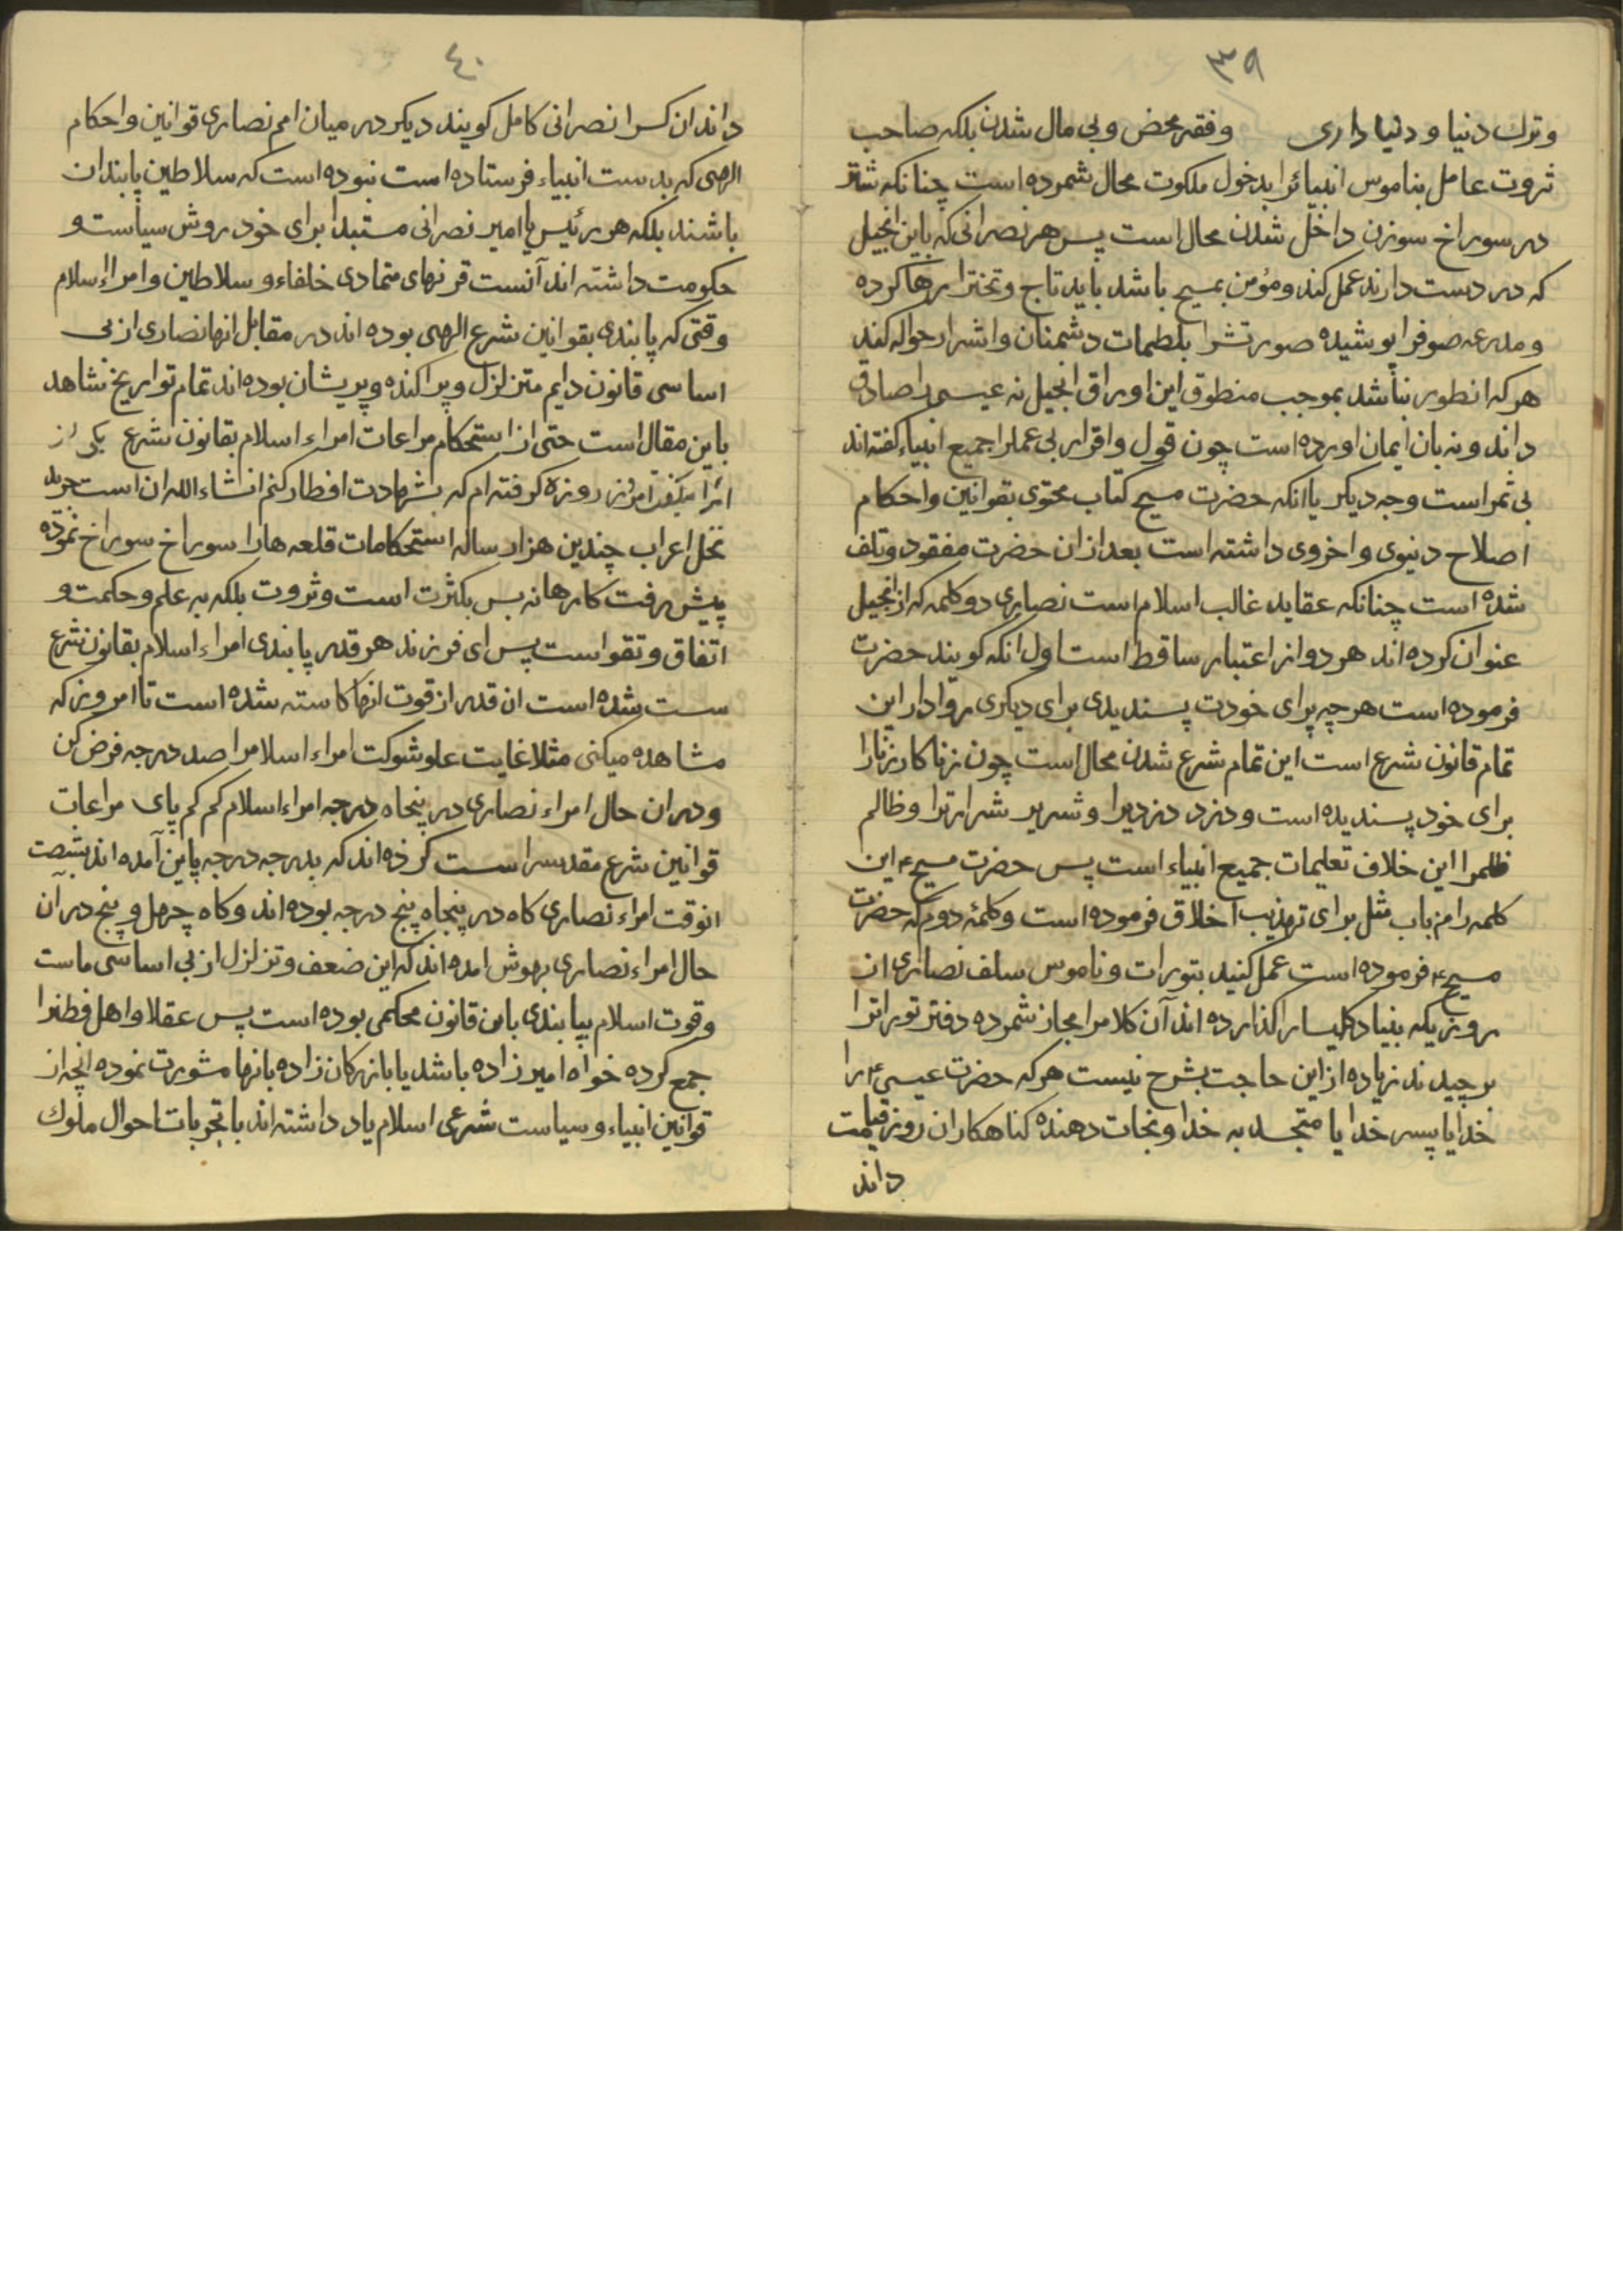 ٣٩
وترك دنیا و دنیا داری وفقر محض وبی مال شدن بلکه صاحب
ثروت عامل بناموس انبیائرا بدخول ملکوت محال شمرده است چنانکه شتر
در سوراخ سوزن داخل شدن محال است پس هر نصرانی که باین انجیل
که در دست دارند عمل کند ومؤمن بمسیح باشد باید تاج وتختترا رها کرده
ومدرعه صوفرا پوشیده صورتشرا بلطمات دشمنان واشرار حواله کند
هرکه انطور نباشد بموجب منطوق این اوراق انجیل نه عیسی را صادق
داند ونه بان ایمان اورده است چون قول واقرار بی عملرا جمیع انبیاء کفته اند
بی ثمر است وجه دیکر یا انکه حضرت مسیح کتاب محتوی بقوانین واحکام
اصلاح دنیوی واخروی داشته است بعد ازان حضرت مفقود وتلف
شده است چنانکه عقاید غالب اسلام است نصاری دو کلمه که از انجیل
عنوان کرده اند هر دو از اعتبار ساقط است اول انکه کویند حضرت
فرموده است هر چه برای خودت پسندیدی برای دیکری روا دار این
تمام قانون شرع است این تمام شرع شدن محال است چون زنا کار زنارا
برای خود پسندیده است ودزد دزدیرا وشریر شرارترا وظالم
ظلمرا این خلاف تعلیمات جمیع انبیاء است پس حضرت مسیح ع این
کلمه را من باب مثل برای تهذیب اخلاق فرموده است وکلمهٔ دوم که حضرت
مسیح ع فرموده است عمل کنید بتورات وناموس سلف نصاری از
روزیکه بنیاد کلیسا را کذارده اند آن کلامرا مجاز شمرده دفتر توراترا
برچیدند زیاده از این حاجت بشرح نیست هرکه حضرت عیسی ع را
خدا یا پسر خدا یا متجسد به خدا ونجات دهنده کناهکاران روز قیامت
داند
٤٠
داند ان کسرا نصرانی کامل کویند دیکر در میان امم نصاری قوانین واحکام
الهی که بدست انبیاء فرستاده است نبوده است که سلاطین پابند ان
باشند بلکه هر رئیس یا امیر نصرانی مستبدا برای خود روش سیاست و
حکومت داشته اند آنست قرنهای متمادی خلفاء وسلاطین وامراء اسلام
وقتی که پابندی بقوانین شرع الهی بوده اند در مقابل انها نصاری از بی
اساسی قانون دایم متزلزل وپراکنده وپریشان بوده اند تمام تواریخ شاهد
باین مقال است حتی از استحکام مراعات امراء اسلام بقانون شرع یکی از
امرا میکفت امروز روزه کرفته ام که بشهادت افطار کنم انشاء الله ان است
تحل اعراب چندین هزار ساله استحکامات قلعه هارا سوراخ سوراخ نموده
پیش رفت کارها نه بس بکثرت است وثروت بلکه به علم وحکمت و
اتفاق وتقوا است پس ای فرزند هر قدر پابندی امراء اسلام بقانون شرع
سست شده است ان قدر از قوت انها کاسته شده است تا امروز که
مشاهده میکنی مثلا غایت علو شوکت امراء اسلامرا صد درجه فرض کن
ودران حال امراء نصاری در پنجاه درجه امراء اسلام کم کم پای مراعات
قوانین شرع مقدسرا سست کرده اند که بدرجه درجه پاین آمده اند بشصت
انوقت امراء نصاری کاه در پنجاه پنج درجه بوده اند وکاه چهل وپنج در آن
حال امراء نصاری بهوش امده اند که این ضعف وتزلزل از بی اساسی ماست
وقوت اسلام بپابندی باین قانون محکمی بوده است پس عقلا واهل فطنرا
جمع کرده خواه امیر زاده باشد یا بازرکان زاده بانها مشورت نموده انچه از
قوانین انبیاء وسیاست شرعی اسلام یاد داشته اند با تجربات احوال ملوك